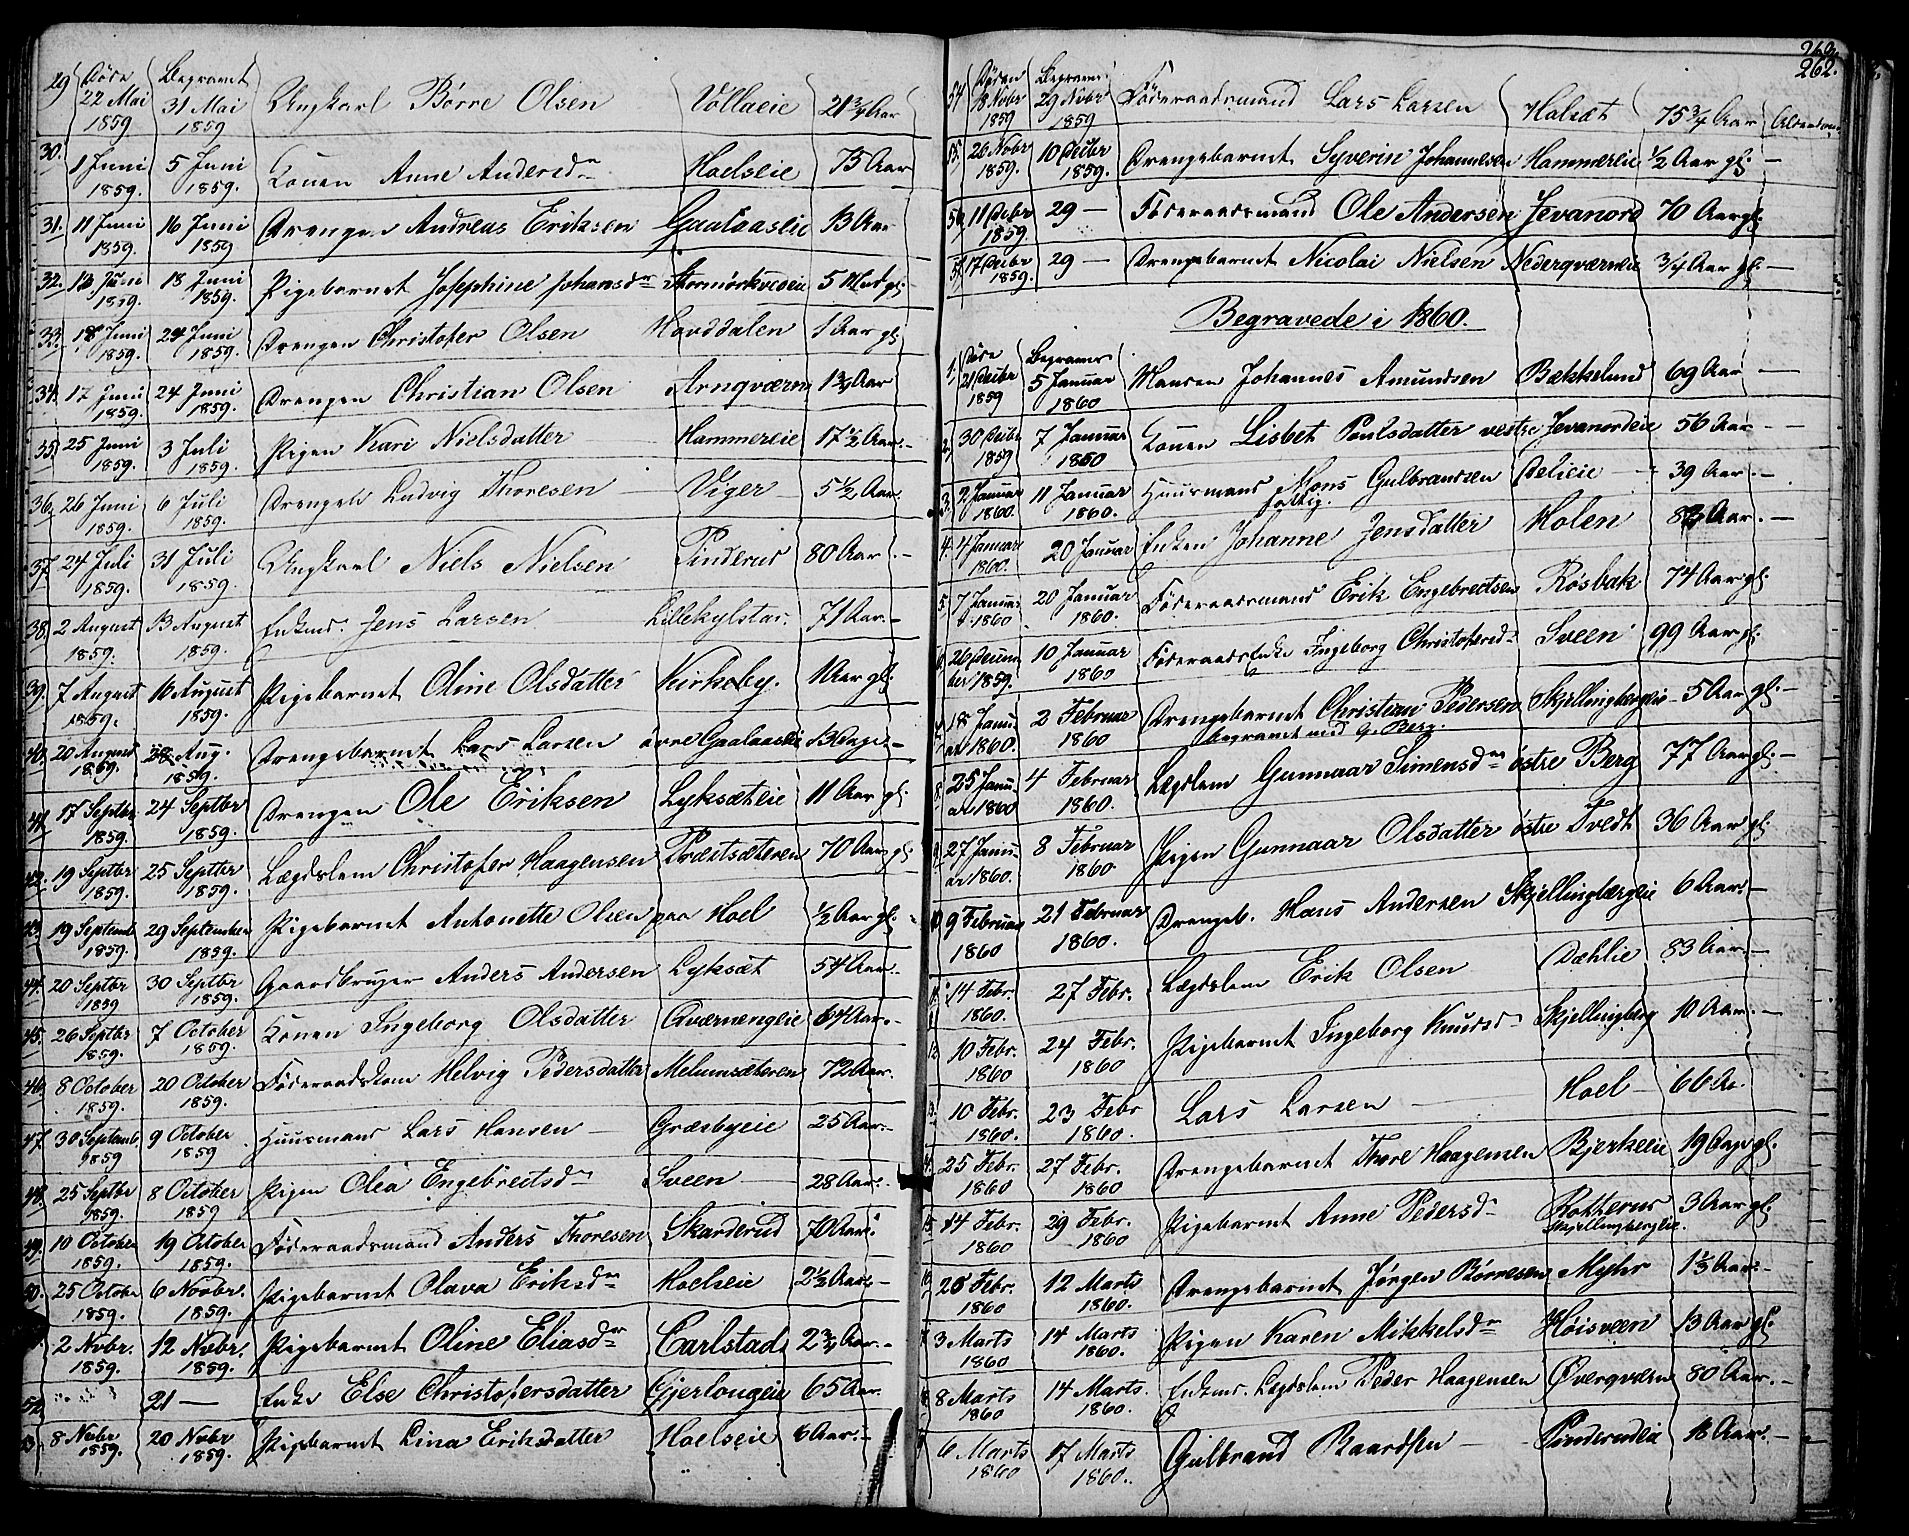 29 Døde 22 Mai 1859 Begravet 31 Mai 1859 Ungkarl Børre Olsen Vollaeie 21¾ Aar
30. 1 Juni 1859. 5 Juni 1859. Konen Anne Andersd. Hoelseie 75 Aar
31. 11 Juni 1859. 16 Juni 1859 Drengen Andreas Eriksen Gaalaaseie 13 Aar
32. 13 Juni 1859. 18 Juni 1859. Pigebarnet Josephine Johansdr 5 Mnd gl.
33. 18 Juni 1859. 24 Juni 1859. Drengen Christofer Olsen Hovddalen 1 Aar gl.
34. 17 Juni 1859. 24 Juni 1859. Drengen Christian Olsen Arnqværn 1¾ Aar
35. 25 Juni 1859. 3 Juli 1859. Pigen Kari Nielsdatter Hammereie 17½ Aar.
36. 26 Juni 1859. 6 Juli 1859. Drengeb Ludvig Thoresen Viger 5½ Aar.
37. 24 Juli 1859. 31 Juli 1859. Ungkarl Niels Nielsen Pinderud 80 Aar. -
38. 2 August 1859. 13 August 1859. Enkmd. Jens Larsen Lillekylstad. 71 Aar. -
39. 7 August 1859. 16 August 1859. Pigebarnet Oline Olsdatter Kirkeby. 1 Aar gl.
40. 20 August 1859. 28 Aug. 1859. Drengebarnet Lars Larsen øvre Gaalaaseie -
41. 17 Septbr 1859. 24 Septbr 1859. Drengen Ole Eriksen Lyksæteie 11 Aar gl.
42. 19 Septbr 1859. 25 Septbr 1859. Lægdslem Christofer Haagensen Præstsæteren 70 Aar gl.
43. 19 Septemb 1859. 29 September 1859. Pigebarnet Antonette Olsen paa Hoel ½ Aar gl.
44. 20 Septbr 1859 30 Septbr 1859. Gaardbruger Anders Andersen Lyksæt 54 Aar.
45. 26 Septbr 1859. 7 October 1859. Konen Ingeborg Olsdatter Qværnengeie 64 Aar. -
46. 8 October 1859. 20 October 1859. Føderaadskone Helvig Pedersdatter Melumsæteren 72 Aar.
47. 30 Septemb. 1859 9 October 1859 Huusmand Lars Hansen - Græsbyeie 25 Aar. -
48. 25 Septbr 1859. 8 October 1859 Pigen Olea Engebreitsdr Sveen 28 Aar. -
49. 10 October 1859. 19 October 1859. Føderaadsmand Anders Thoresen Skarderud 70 Aar.
50. 25 October 1859. 6 Novbr. 1859. Pigebarnet Olava Eriksdr Hoelseie 2½ Aar. -
2 Nvbr. 1859. 12 Nvbr. 1859. Pigebarnet Oline Eliasdr Carlstad 2¾ Aar. -
52 21 - Enke Else Christofersdatter Gjerlongeie 65 Aar.
53. 8 Nvbr 1859. 20 Nvbr 1859. Pigebarnet Lina Eriksdatter Hoelseie 6 Aar. -
262.
54 Døden 18 Novbr 1859 Begraves 29 Nvbr 1859 Føderaadsmand Lars Larsen Holsæt 75¾ Aar
55. 26 Nvbr 1859. 10 Decbr 1859. Drengebarnet Syverin Johannesen Hammereie ½ Aar gl. -
56. 11 Decbr 1859. 29 - Føderaadsmand Ole Andersen Jevanord 70 Aar gl.
57. 17 Decbr 1859. 29 - Drengebarnet Nicolai Nielsen Nederqværneie ¾ Aar gl. -
Begravede i 1860.
1. Døde 21 Decbr 1859 Begraves 5 Januar 1860 Manden Johannes Amundsen Bækkelund 69 Aar -
2. 30 Decbr 1859 7 Januar 1860 Konen Lisbet Poulsdatter vestre Jevanordeie 56 Aar -
3. 2 Januar 1860. 11 Januar 1860. Huusmand Mons Gulbrandsen Delieie - 39 Aar. -
fattig
4. 4 Januar 1860. 20 Januar Enken Johanne Jensdatter Holen Aar. -
5. 7 Januar 1860 20 Januar 1860. Føderaadsmand Erik Engebretsen Røsbak 74 Aar gl.
6. 26 Decem ber 1859. 10 Januar 1860 Føderaads Enke Ingeborg Christofersd. Sveen 99 Aar gl.
7. 18 Janu- ar 1860. 2 Februar 1860 Drengebarnet Christian Pedersen Skjellingbergeie 5 Aar gl. -
begravet med G. Berg.
8. 25 Janu- ar 1860 4 Februar 1860. Lægdslem Gunnaar Simensdr østre Berg 77 Aar gl. -
9. 27 Janu- ar 1860. 8 Februar 1860 Pigen Gunnaar Olsdatter østre Tvedt 36 Aar gl.
10. 9 Februar 1860 21 Februar 1860. Drengeb. Hans Andersen Skjellingbærgeie 6 Aar. -
11. 14 Febr. 1860. 27 Febr. Lægdslem Erik Olsen Dæhlie 83 Aar. -
12. 10 Febr. 1860 24 Febr. 1860 Pigebarnet Ingeborg Knudsd. Skjellingberg 10 Aar. -
13. 10 Febr. 1860. 23 Febr 1860. Lars Larsen Hoel - 66 Aar.
14. 25 Febr. 1860 27 Febr. 1860 Drengebarnet Thore Haagensen Bjerkeeie 19 gl.
15. 14 Febr. 1860 29 Febr. 1860 Pigebarnet Anne Pedersd. Rotterud 3 Aar gl.
Skjellingbergeie.
16. 26 Febr. 1860 12 Marts 1860. Drengebarnet Jørgen Børresen Myhr Aar. -
17. 3 Marts 1860 14 Marts 1860. Pigen Karen Mikkelsdr Høisveen 13 Aar gl.
18. 8 Marts 1860 14 Marts 1860. Enkmd. Lægdslem Peder Haagensen Øverqværn 80 Aar. -
6 Marts 1860 17 Marts 1860. Gulbrand Baardsen - Pinderudeie 18 Aar. -